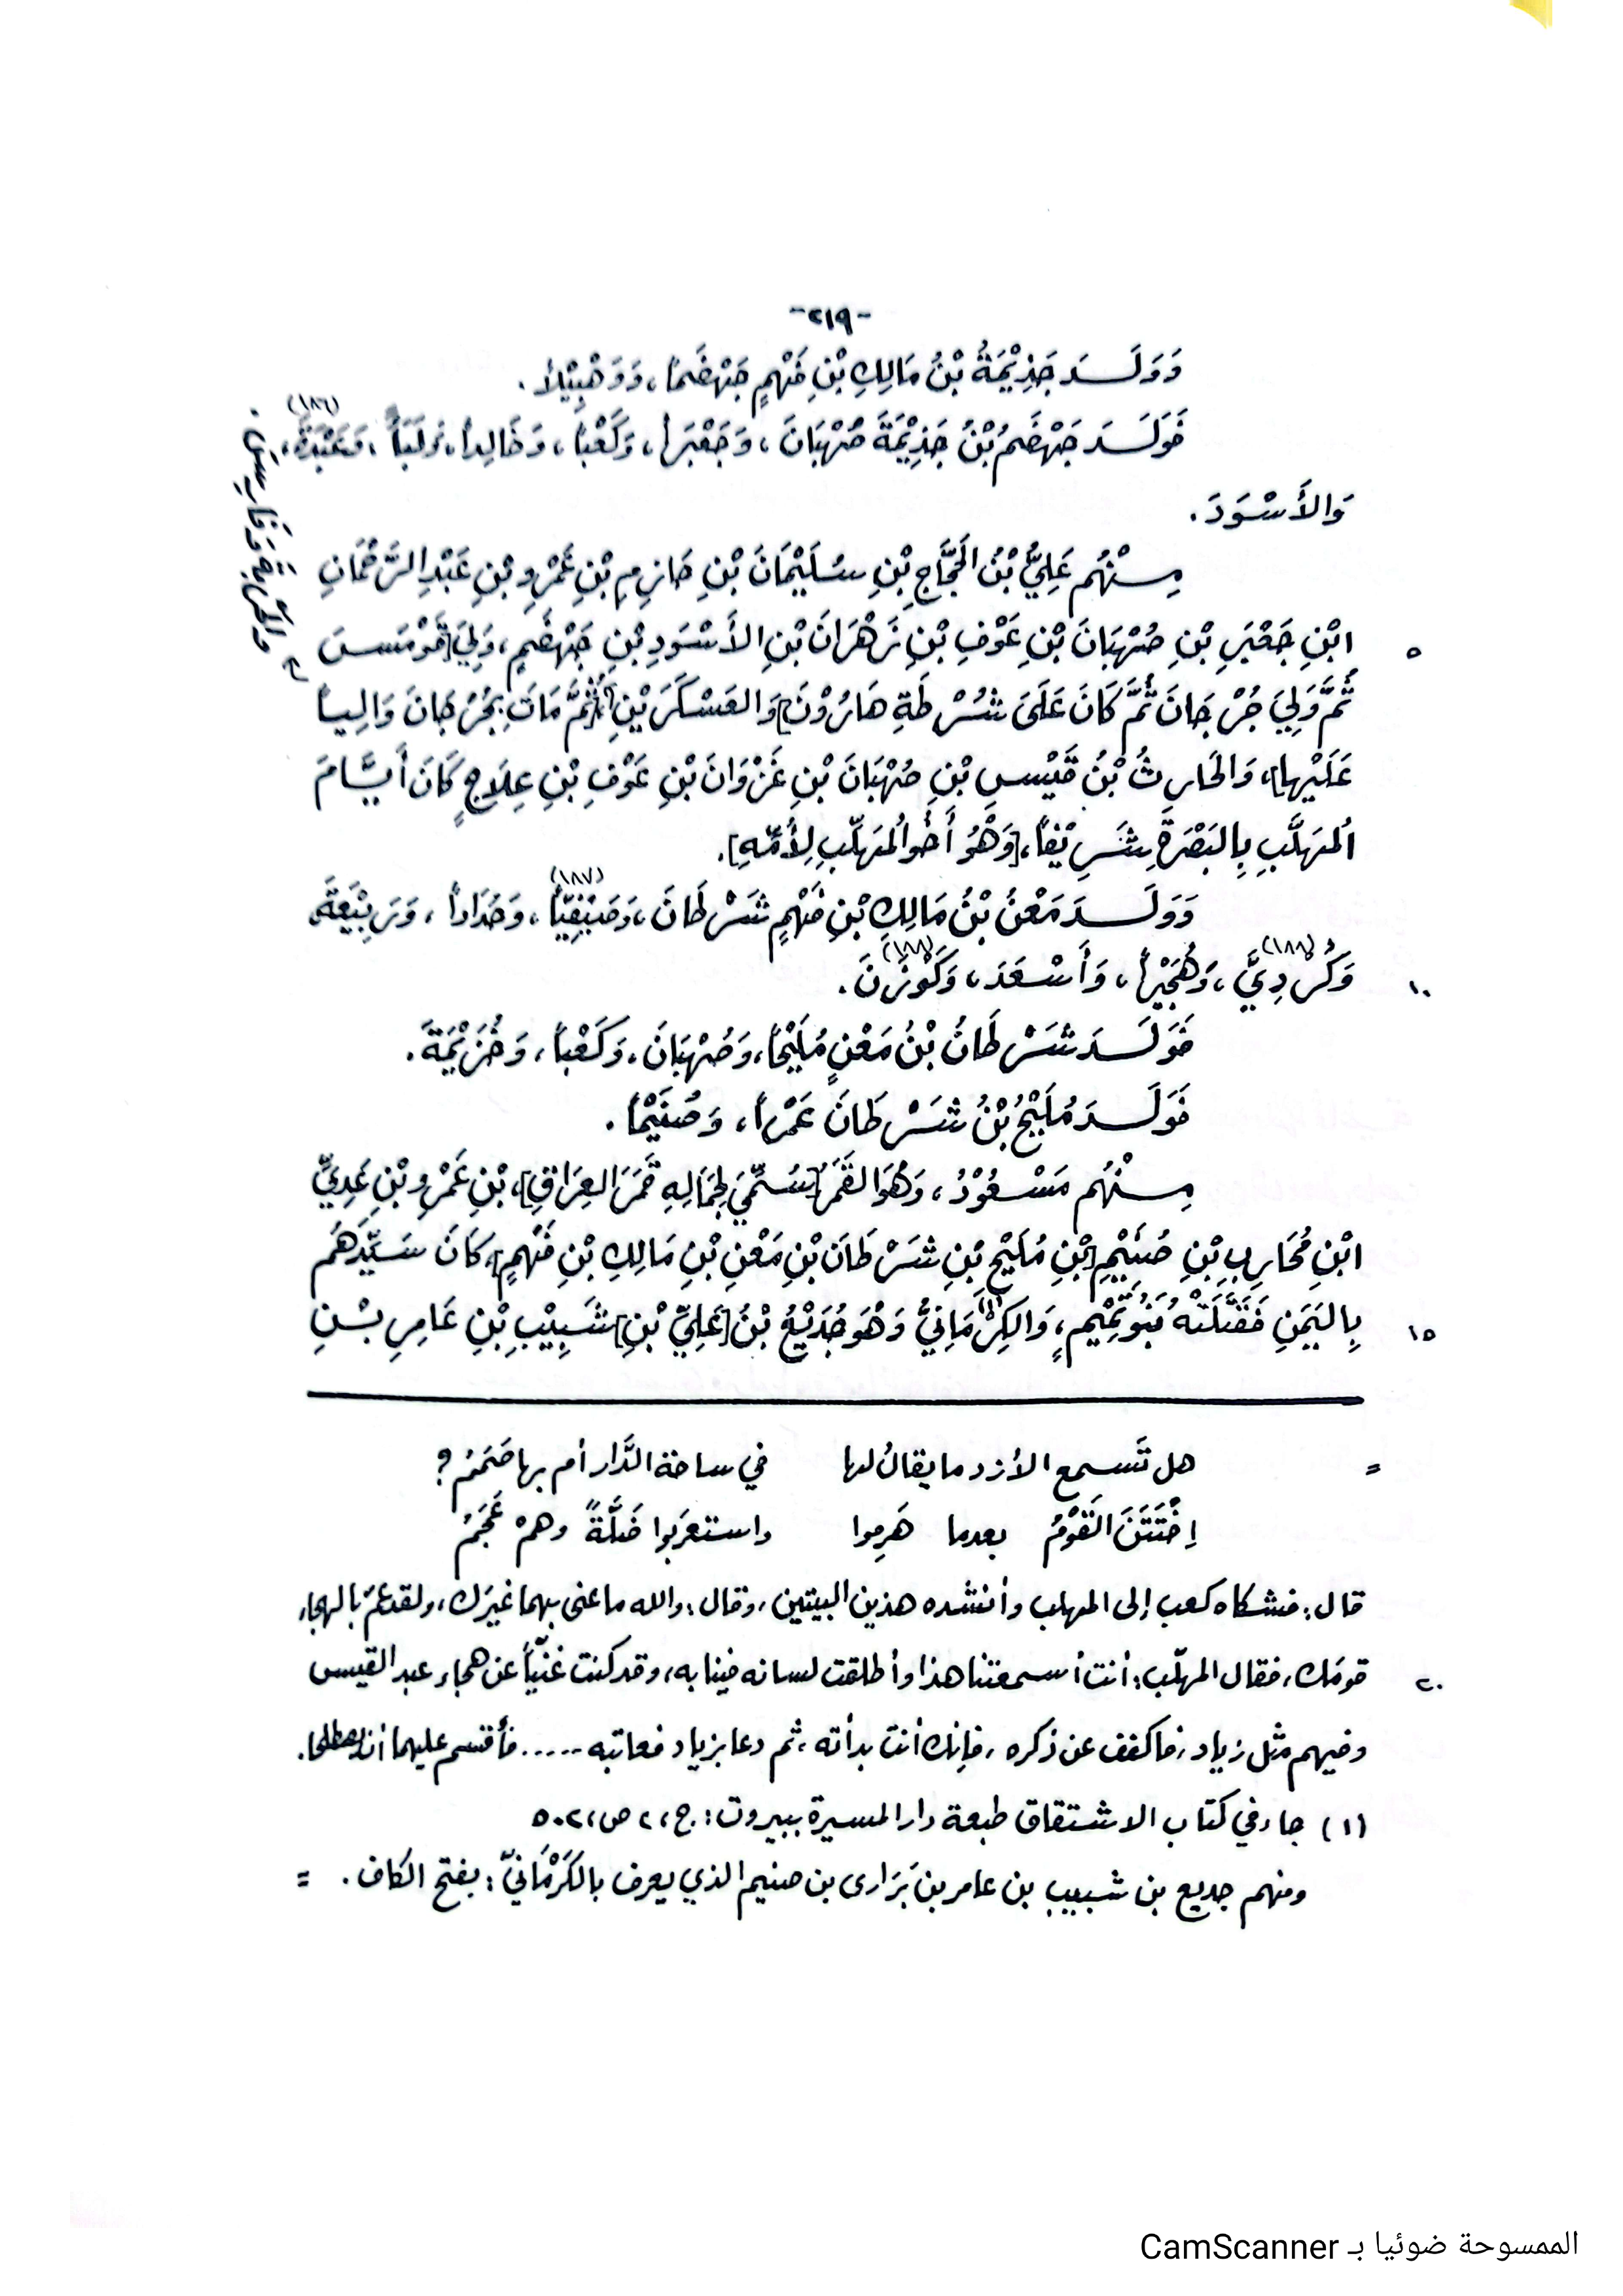 -٢١٩-
وَوَلَدَ جَذِيْمَةُ بْنُ مَالِكِ بْنِ فَهْمٍ جَهْضَماً، وَوَهْبِيْلاً.
فَوَلَدَ جَهْضَمُ بْنُ جَذِيْمَةَ صُهْبَانَ، وَجَعْبَراً، وَكَعْباً، وَخَالِداً، وَعَبْدَةَ، (١٨٦)
وَالأَسْوَدَ.
مِنْهُم عَلِيُّ بْنُ الحَجَّاجِ بْنِ سُلَيْمَانَ بْنِ حَازِمِ بْنِ عَمْرِو بْنِ عَبْدِ الرَّحْمَانِ
٥ ابْنِ جَعْبَرِ بْنِ صُهْبَانَ بْنِ عَوْفِ بْنِ زَهْرَانَ بْنِ الأَسْوَدِ بْنِ جَهْضَمٍ، وَلِيَ [قَوْمَسَ
ثُمَّ وَلِيَ جُرْجَانَ ثُمَّ كَانَ عَلَى شُرْطَةِ هَارُوْنَ] وَالعَسْكَرَيْنِ [ثُمَّ مَاتَ بِجُرْجَانَ وَالِياً
عَلَيْهَا]، وَالحَارِثُ بْنُ قَيْسِ بْنِ صُهْبَانَ بْنِ غَزْوَانَ بْنِ عَوْفِ بْنِ عِلَاجٍ كَانَ أَيَّامَ
المُهَلَّبِ بِالبَصْرَةِ شَرِيْفاً، [وَهُوَ أَخُو المُهَلَّبِ لِأُمِّهِ].
وَوَلَدَ مَعْنُ بْنُ مَالِكِ بْنِ فَهْمٍ شَرْطَانَ، وَصَيْفِيّاً (١٨٧)، وَحَدَاداً، وَرَبِيْعَةَ،
١٠ وَكُرْدِيَّ (١٨٨)، وَهُجَيْراً، وَأَسْعَدَ، وَكَوْزَنَ (١٨٨).
فَوَلَدَ شَرْطَانُ بْنُ مَعْنٍ مُلَيْحاً، وَصُهْبَانَ، وَكَعْباً، وَخُزَيْمَةَ.
فَوَلَدَ مُلَيْحُ بْنُ شَرْطَانَ عَمْراً، وَصُنَيْماً.
مِنْهُم مَسْعُوْدُ، وَهُوَ القَمَرُ [سُمِّيَ لِجَمَالِهِ قَمَرَ العِرَاقِ]، بْنِ عَمْرِو بْنِ عَدِيِّ
ابْنِ مُحَارِبِ بْنِ صُنَيْمِ [بْنِ مُلَيْحِ بْنِ شَرْطَانَ بْنِ مَعْنِ بْنِ مَالِكِ بْنِ فَهْمٍ]، كَانَ سَيِّدَهُم
١٥ بِاليَمَنِ فَقَتَلَتْهُ بَنُو تَمِيْمٍ، وَالكِرْمَانِيُّ (١) وَهُوَ جُدَيْعُ بْنُ [عَلِيِّ بْنِ] شَبِيْبِ بْنِ عَامِرِ بْنِ
= هل تَسمع الأزد ما يقالُ لها في ساحة الدَّار أم بها صَمَمُ؟
اِخْتَتَنَ القَوْمُ بعدما هَرِموا واستعرَبوا ضَلَّةً وهمْ عَجَمُ
قال: فشكاه كعب إلى المهلب وأنشده هذين البيتين، وقال: والله ما عنى بهما غيرَك، ولقد عَمَّ بالهجاء
٢٠ قومَك، فقال المهلّب: أنت أسمعتنا هذا وأطلقت لسانه فينا به، وقد كنت غنيّاً عن هجاء عبد القيس
وفيهم مثل زياد، فاكفف عن ذكره، فإنك أنت بدأته، ثم دعا بزياد فعاتبه ..... فأقسم عليهما أن يصطلحا.
(١) جاء في كتاب الاشتقاق طبعة دار المسيرة ببيروت: ج، ٢ ص، ٥٠٢
ومنهم جديع بن شبيب بن عامر بن بَرَارى بن صنيم الذي يعرف بالكَرْمَانيّ: بفتح الكاف. =
الممسوحة ضوئيا بـ CamScanner